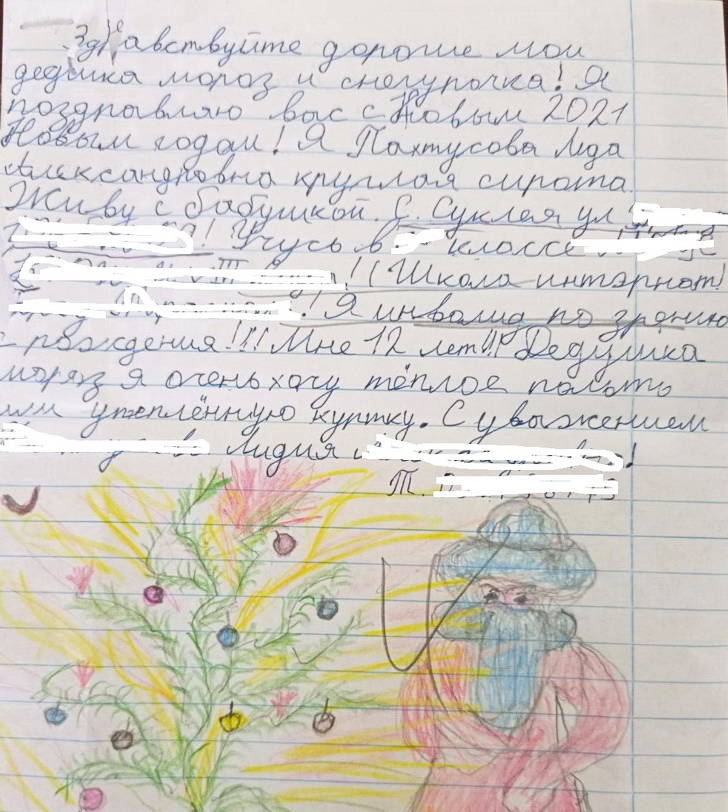 Здравствуйте дорогие мои
дедушка мороз и снегурочка! Я
поздравляю вас с Новым 2021
Новым годом! Я Пахтусова Лида
Александровна круглая сирота.
Живу с бабушкой. С. Суклея ул
! Учусь в классе
!! (Школа интэрнат)
! Я инвалид по зрению
с рождения!!! Мне 12 лет!!! Дедушка
мороз я очень хочу тёплое пальто
или утеплённую куртку. С увыжением
Лидия !
Т.